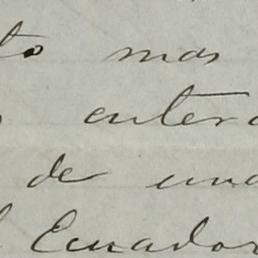 to mas
entera
de una
l Ecuador